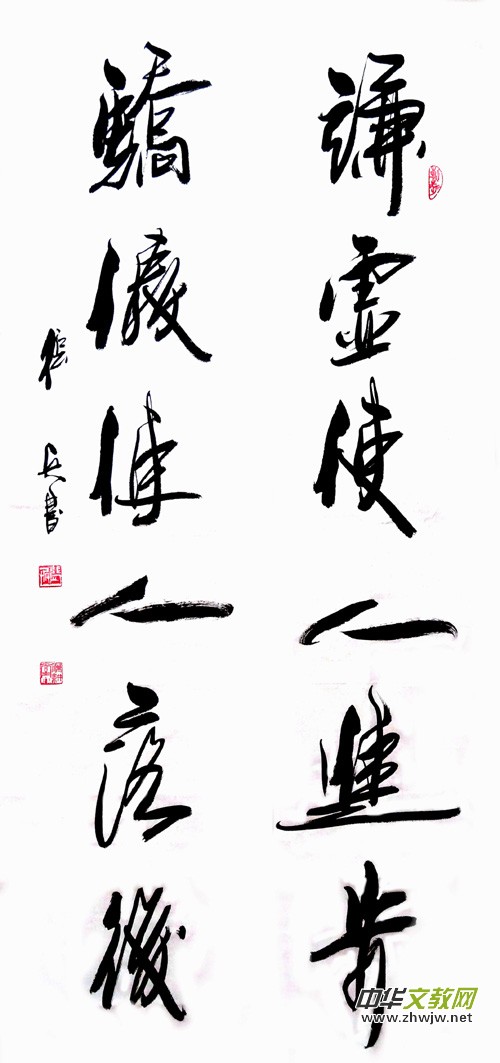 謙虛使人進步
驕傲使人落後
書
中华文教网
www.zhwjw.net